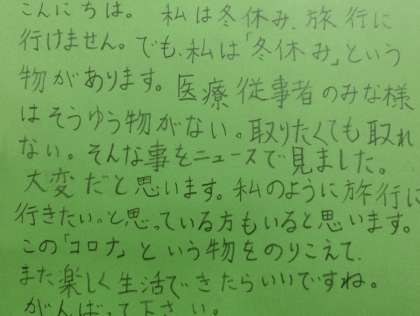 こんにちは。私は冬休み、旅行に
行けません。でも、私は「冬休み」という
物があります。医療従事者のみな様
はそうゆう物がない。取りたくても取れ
ない。そんな事をニュースで見ました。
大変だと思います。私のように旅行に
行きたい。と思っている方もいると思います。
この「コロナ」という物をのりこえて、
また楽しく生活できたらいいですね。
がんばって下さい。